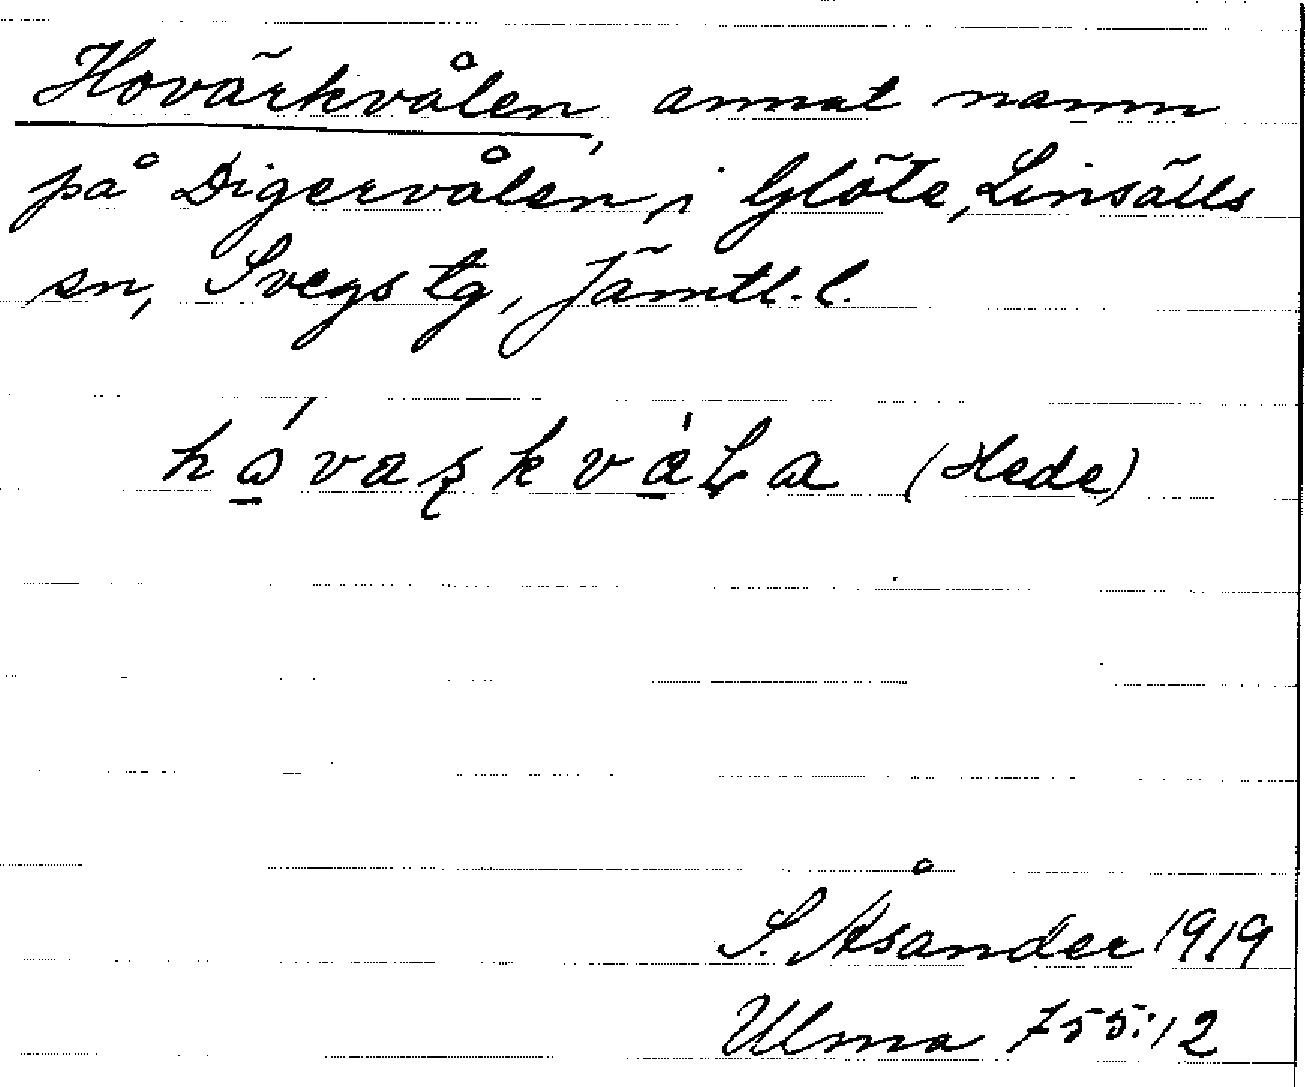 Hovärkvålen, annat namn
på Digervålen, i Glöte, Linsälls
sn, Svegs tg, Jämtl. l.
(Hede)
S. Åsander 1919
Ulma 755:12